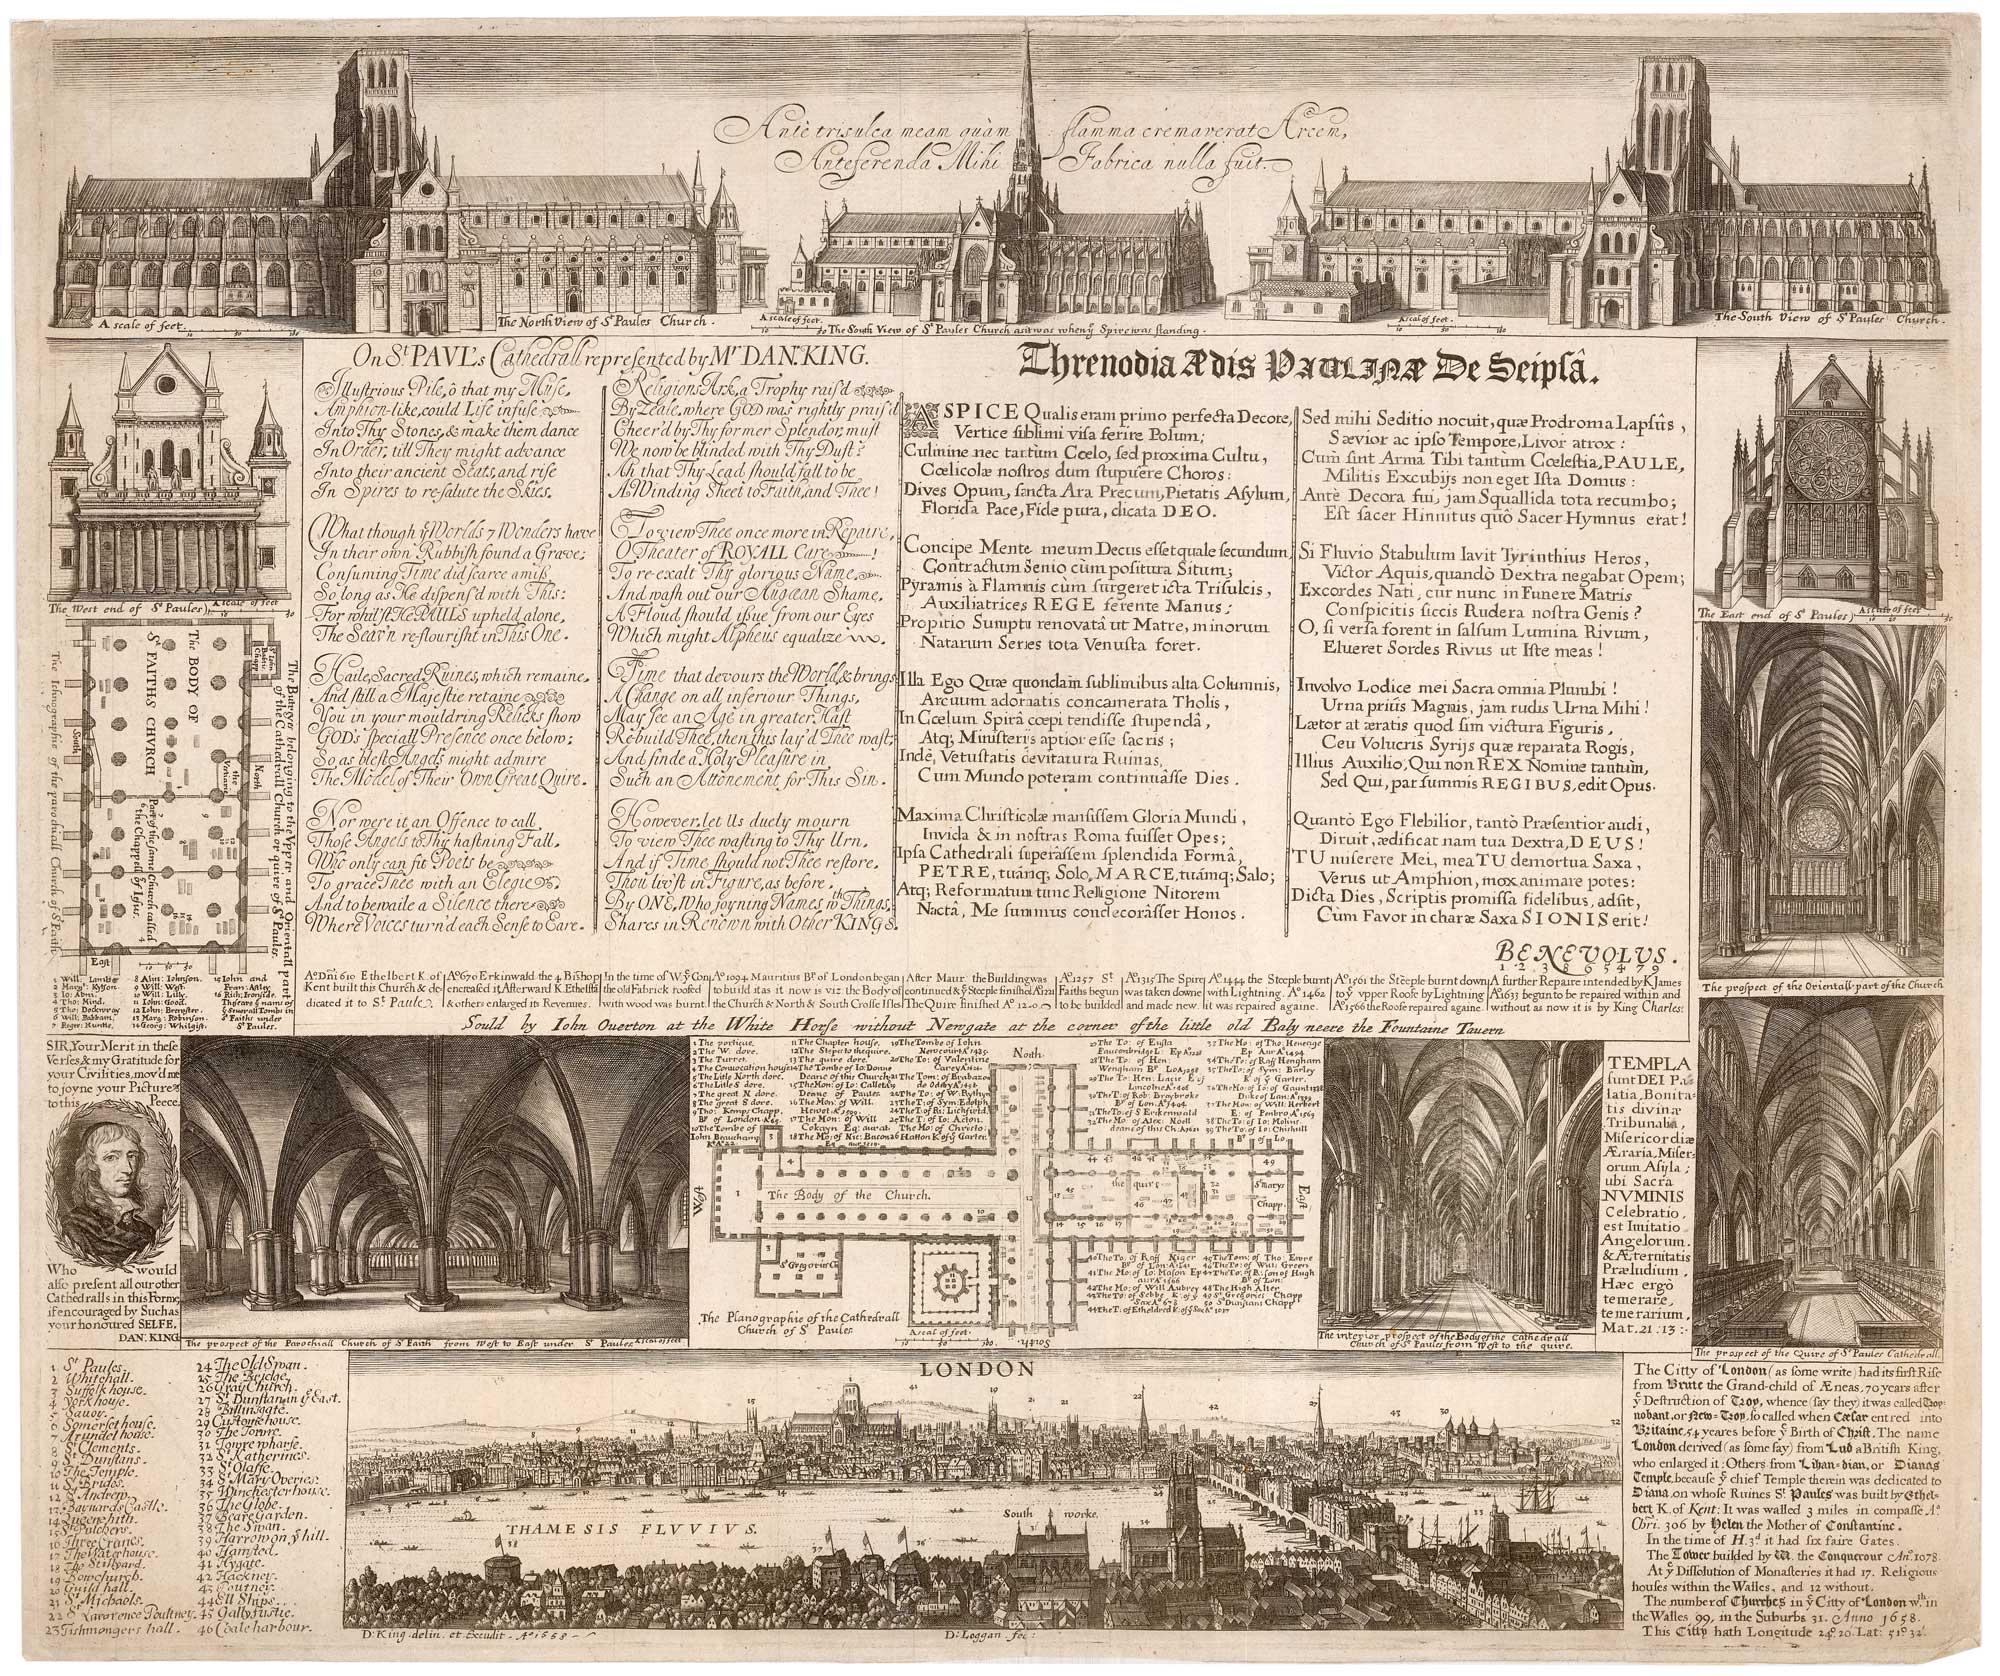 Antè trisulca meam quàm flamma cremaverat Arcem,
Anteferenda Mihi Fabrica nulla fuit.
A scale of feet.
The North View of St Paules Church.
A scale of feet.
The South View of St Paules Church as it was when ye Spire was standing.
A scale of feet.
The South View of St Paules Church.
The West end of St Paules,
A scale of feet
The East end of St Paules,
A scale of feet
On St PAVL's Cathedrall represented by Mr DAN. KING.
Illustrious Pile, ô that my Muse,
Amphion-like, could Life infuse
Into Thy Stones, & make them dance
In Order, till They might advance
Into their ancient Seats, and rise
In Spires to re-salute the Skies.
What though ye Worlds 7 Wonders have
In their own Rubbish found a Grave;
Consuming Time did scarce amiss
So long as He dispens'd with This:
For whil'st He PAULS upheld alone,
The Seav'n re-flourisht in This One.
Haile, Sacred Ruines, which remaine,
And still a Majestie retaine
You in your mouldring Relicks show
GOD's speciall Presence once below;
So as blest Angels might admire
The Model of Their Own Great Quire.
Nor were it an Offence to call
Those Angels to Thy hastning Fall,
Who only can fit Poets be
To grace Thee with an Elegie
And to bewaile a Silence there
Where Voices turn'd each Sense to Eare.
Religions Ark, a Trophy rais'd
By Zeale, where GOD was rightly prais'd
Cheer'd by Thy former Splendor, must
We now be blinded with Thy Dust?
Ah that Thy Lead should fall to be
A Winding Sheet to Faith, and Thee!
To view Thee once more in Repaire,
O Theater of ROYALL Care!
To re-exalt Thy glorious Name,
And wash out our Augæan Shame,
A Floud should issue from our Eyes
Which might Alpheus equalize
Time that devours the World, & brings
A Change on all inferiour Things,
May see an Age in greater Hast
Rebuild Thee, then this lay'd Thee wast;
And finde a Holy Pleasure in
Such an Attonement for This Sin.
However, let Us duely mourn
To view Thee wasting to Thy Urn.
And if Time should not Thee restore,
Thou liv'st in Figure, as before,
By ONE, Who joyning Names, wth Things,
Shares in Renown with Other KINGS.
Threnodia Ædis PAULINÆ De Seipsâ.
ASPICE Qualis eram primo perfecta Decore,
Vertice sublimi visa ferire Polum;
Culmine nec tartum Cœlo, sed proxima Cultu,
Cœlicolæ nostros dum stupuêre Choros:
Dives Opum, sancta Ara Precum, Pietatis Asylum,
Florida Pace, Fide pura, dicata DEO.
Concipe Mente meum Decus esset quale secundum,
Contractum Senio cùm positura Situm;
Pyramis à Flammis cùm surgeret icta Trisulcis,
Auxiliatrices REGE ferente Manus;
Propitio Sumptu renovatâ ut Matre, minorum
Natarum Series tota Venusta foret.
Illa Ego Quæ quondam sublimibus alta Columnis,
Arcuum adornatis concamerata Tholis,
In Cœlum Spirâ cœpi tendisse stupendâ,
Atq; Ministerijs aptior esse sacris;
Indè, Vetustatis devitatura Ruinas,
Cum Mundo poteram continuasse Dies.
Maxima Christicolæ mansissem Gloria Mundi,
Invida & in nostras Roma fuisset Opes;
Ipsa Cathedrali superâssem splendida Formâ,
PETRE, tuámq; Solo, MARCE, tuámq; Salo;
Atq; Reformatum tunc Religione Nitorem
Nacta, Me summus condecorâsset Honos.
Sed mihi Seditio nocuit, quæ Prodroma Lapsûs,
Sævior ac ipso Tempore, Livor atrox:
Cùm sint Arma Tibi tantùm Cœlestia, PAULE,
Militis Excubijs non eget Ista Domus:
Antè Decora fui, jam Squallida tota recumbo;
Est sacer Hinnitus quò Sacer Hymnus erat!
Si Fluvio Stabulum lavit Tyrinthius Heros,
Victor Aquis, quandò Dextra negabat Opem;
Excordes Nati, cur nunc in Funere Matris
Conspicitis siccis Rudera nostra Genis?
O, si versa forent in salsum Lumina Rivum,
Elueret Sordes Rivus ut Iste meas!
Involvo Lodice mei Sacra omnia Plumbi!
Urna priùs Magnis, jam rudis Urna Mihi!
Lætor at æratis quod sim victura Figuris,
Ceu Volucris Syrijs quæ reparata Rogis,
Illius Auxilio, Qui non REX Nomine tantùm,
Sed Qui, par summis REGIBUS, edit Opus.
Quantò Egò Flebilior, tantò Præsentior audi,
Diruit, ædificat nam tua Dextra, DEUS!
TU miserere Mei, mea TU demortua Saxa,
Verus ut Amphion, mox animare potes:
Dicta Dies, Scriptis promissa fidelibus, adsit,
Cùm Favor in charæ Saxa SIONIS erit!
BENEVOLUS.
1 2 3 8 6 5 4 7 9
Ao Dni 610 Ethelbert K. of
Kent built this Church & de-
dicated it to St Paule.
Ao 670 Erkinwald the 4 Bishop
encreased it, Afterward K. Ethelsta
& others enlarged its Revenues.
In the time of W ye Con
the old Fabrick roofed
with wood was burnt
Ao 1094 Mauritius Bp of London began
to build it as it now is viz the Body of
the Church & North & South Crosse Isles
After Maur the Building was
continued & ye Steeple finished Ao 1221
The Quire finished Ao 1240
Ao 1257 St
Faiths begun
to be builded
Ao 1315 The Spire
was taken downe
and made new
Ao 1444 the Steeple burnt
with Lightning. Ao 1462
it was repaired againe.
Ao 1561 the Steeple burnt down
to ye upper Roofe by Lightning
Ao 1566 the Roofe repaired againe.
A further Repaire intended by K James
Ao 1633 begun to be repaired within and
without as now it is by King Charles:
Sould by Iohn Overton at the White Horse without Newgate at the corner of the little old Baly neere the Fountaine Tavern
The BODY OF
St FAITHS CHVRCH
Part of the same Church called
the Chappell of Iesus.
South
North
East
The Ichnographie of the parochiall Church of St Faith
The Bar ye belonging to the Vpper and Orientall part
of the Cathedrall Church or quire of St Paules.
2 Marg: Kyson.
3 Io: Abin:
4 Tho: Hind.
6 Will: Babham.
7 Roger: Huntle.
8 Alin: Iohnson.
9 Will: West.
10 Will: Lilly.
11 Iohn: Good.
12 Iohn: Brenster.
13 Marg: Robinson.
14 Georg: Whilgist.
15 Iohn and
Fran: Astley
16 Rich: Ironside.
Thes are ye names of
ye severall Tombs in
St Faiths under
St Paules.
The prospect of the Orientall part of the Church
SIR, Your Merit in these
Verses, & my Gratitude for
your Civilities, mov'd me
to joyne your Picture
to this Peece.
Who would
also present all our other
Cathedralls in this Forme,
if encouraged by Such as
your honoured SELFE.
DAN. KING.
The prospect of the Parochiall Church of St Faith from West to East under St Paules.
A scal of feet
1 The portique.
2 The W. dore.
3 The Turret.
4 The Convocation house
5 The Litle North dore.
6 The Litle S dore.
7 The great N dore.
8 The great S dore.
9 Tho: Kemp Chapp.
10 The Tombe of
Iohn Beauchamp
11 The Chapter house.
12 The Steps to the quire.
13 The quire dore.
14 The Tombe of Io: Donne
Deane of this Church
16 The Mon: of Will
17 The Mon: of Will
Cokayn Eq: aurat.
18 The Mo: of Nic: Bacon
19 The Tombe of Iohn
20 The To: of Valentine
North
West
East
South
The Body of the Church.
the quire
St Marys
Chapp.
St Gregories Ch
The Planographie of the Cathedrall
Church of St Paules
A scal of feet.
48 The High Alter
49 St Georges Chapp
50 St Dunstans Chapp
The interior prospect of the Body of the Cathedrall
Church of St Paules from West to the quire.
TEMPLA
sunt DEI Pa-
latia, Bonita-
tis divinæ
Tribunalia,
Misericordiæ
Æraria, Miser-
orum Asyla;
ubi Sacra
NVMINIS
Celebratio,
est Imitatio
Angelorum,
& Æternitatis
Præludium,
Hæc ergò
temerare,
temerarium.
Mat. 21:13:
The prospect of the Quire of St Paules Cathedrall.
1 St Paules.
2 Whitehall.
3 Suffolk house.
4 York house.
5 Savoy.
6 Somerset house.
7 Arundel house.
8 St Clements.
9 St Dunstans.
10 The Temple.
11 St Brides.
12 St Andrew.
13 Baynards Castle.
14 Queenehith.
15 St Pulchers.
16 Three Cranes.
17 The Waterhouse.
18 The Stillyard.
19 Bowchurch.
20 Guild hall.
21 St Michaels.
22 St Lawrence Poultney.
23 Fishmongers hall.
24 The Old Swan.
25 The Bridge.
26 Gray Church.
27 St Dunstan in ye East.
28 Billinsgate.
29 Custome house.
30 The Towre.
31 Towre wharfe.
32 St Katherines.
33 St Olaffe.
34 St Mary Overies.
35 Winchester house.
36 The Globe.
37 Beare Garden.
38 The Swan.
39 Harrow on ye hill.
40 Hamsted.
41 Hygate.
42 Hackney.
43 Poutney.
44 Ell Ships.
45 Gally fustie.
46 Coale harbour.
LONDON
THAMESIS FLVVIVS.
South worke.
D: King delin. et Excudit. Ao 1658
D: Loggan fec:
The Citty of London (as some write) had its first Rise
from Brute the Grand-child of Æneas, 70 years after
ye Destruction of Troy, whence (say they) it was called Troy-
nobant, or New-Troy, so called when Cæsar entred into
Britaine, 54 yeares before ye Birth of Christ. The name
London derived (as some say) from Lud a British King,
who enlarged it: Others from Lhan-dian, or Dianas
Temple, because ye chief Temple therein was dedicated to
Diana, on whose Ruines St. Paules was built by Ethel-
bert K. of Kent: It was walled 3 miles in compasse Ao
Chri. 306 by Helen the Mother of Constantine.
In the time of H. 3d it had six faire Gates.
The Tower builded by W. the Conquerour Ano. 1078.
At ye Dissolution of Monasteries it had 17. Religious
houses within the Walles, and 12 without.
The number of Churches in ye Citty of London wth in
the Walles 99, in the Suburbs 31. Anno 1658.
This Citty hath Longitude 24o. 20' Lat: 51o 32'